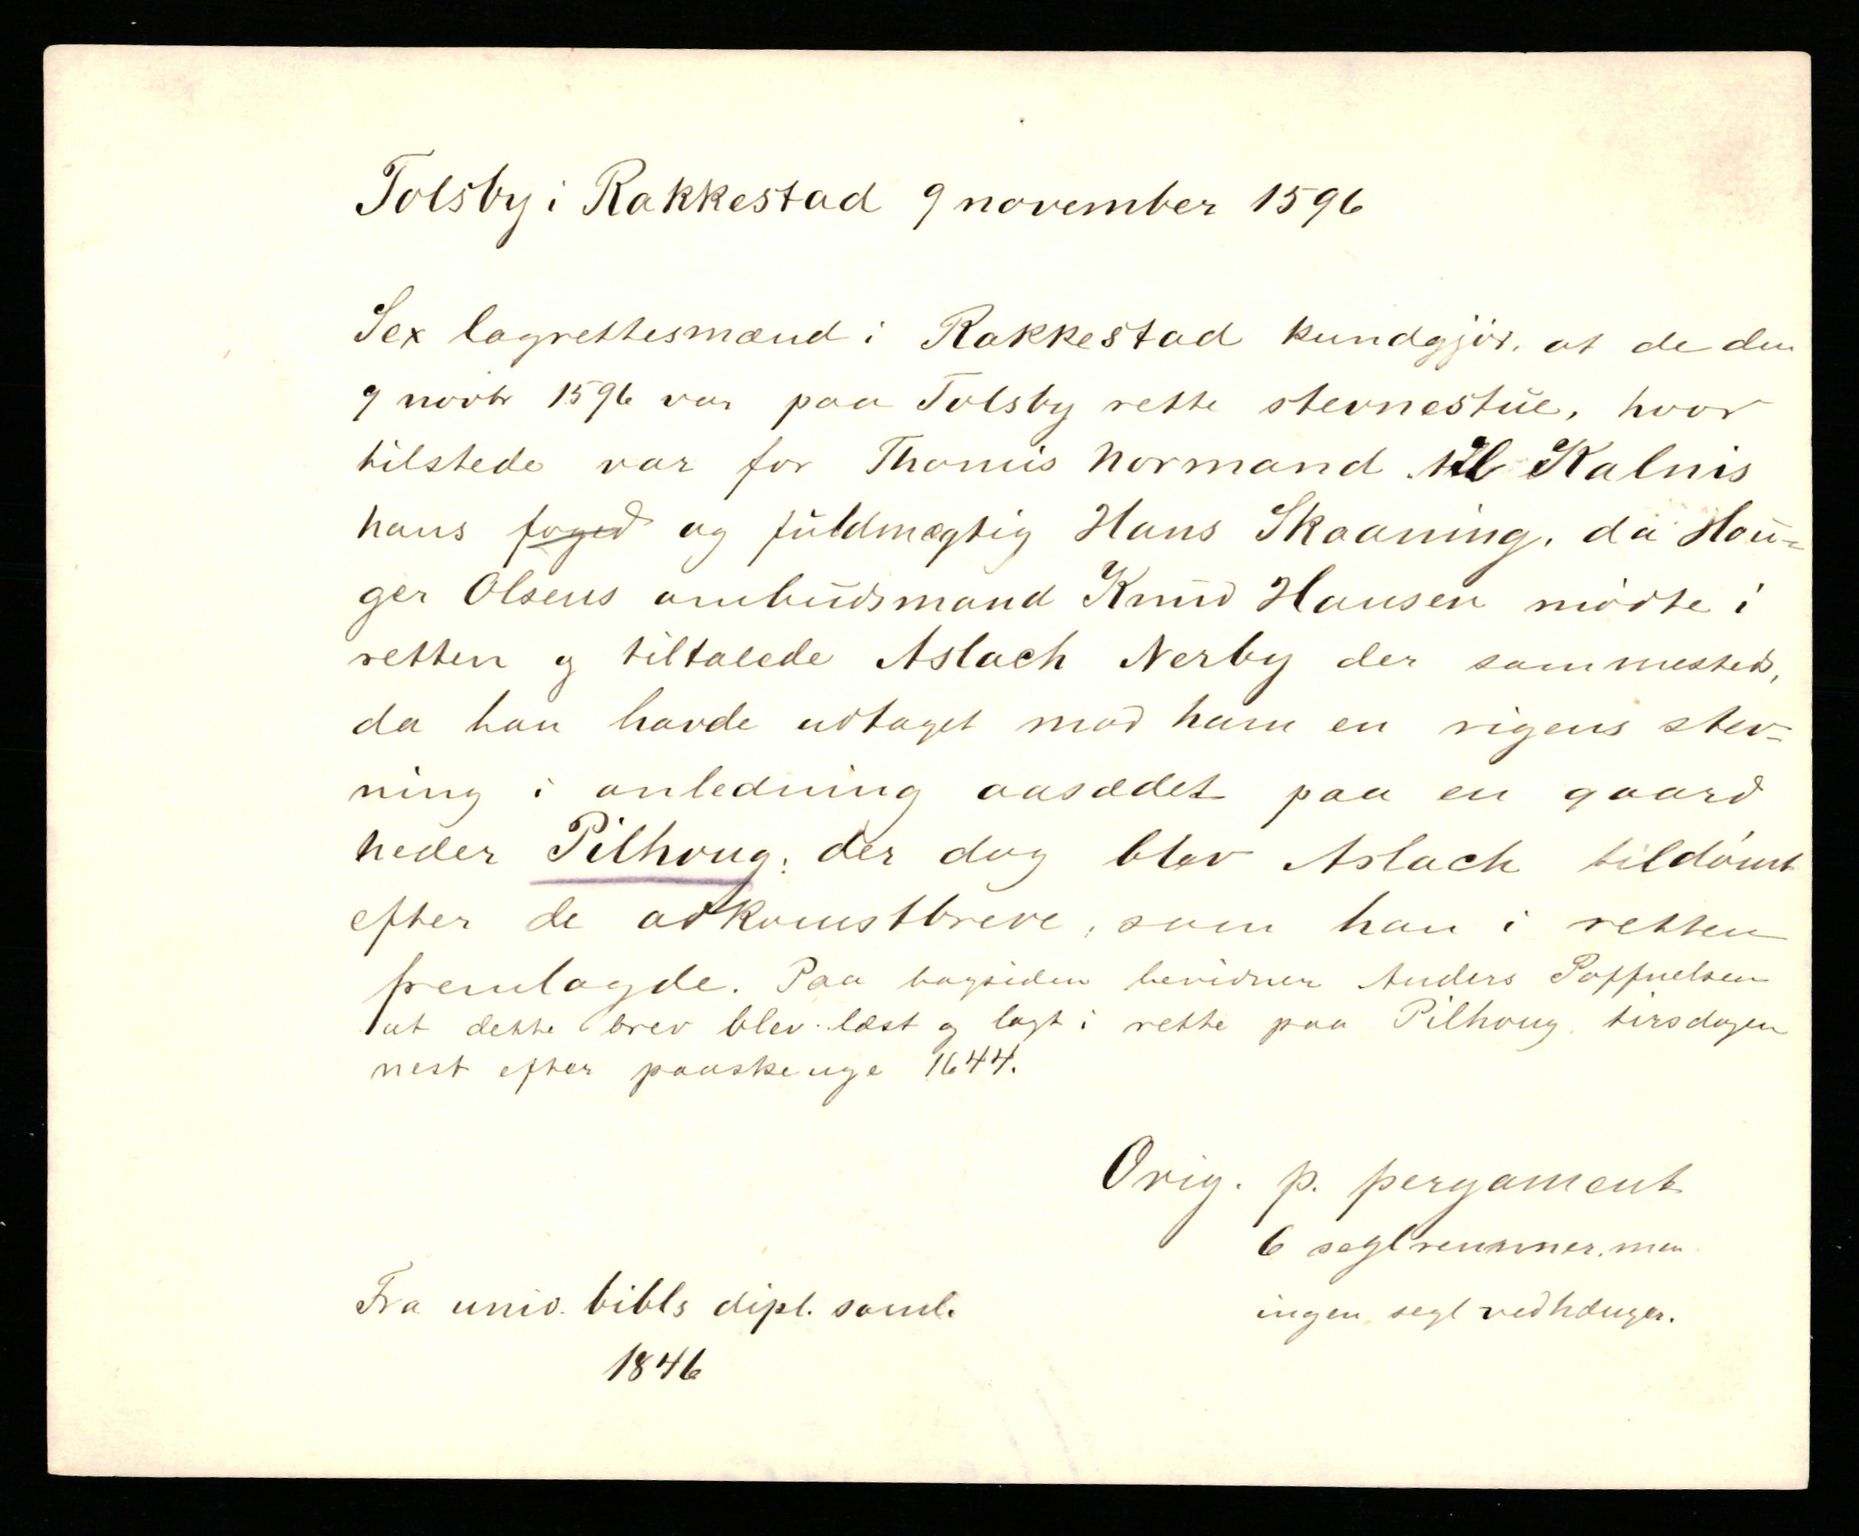 Tolsby i Rakkestad 9 november 1596
Sex lagrettesmænd i Rakkestad kundgjör, at de den
9 novbr 1596 var paa Tolsby rette stevnestue, hvor
tilstede var for Thomis Normand til Kalnis
hans foged og fuldmægtig Hans Skaaning, da Hou-
ger Olsens ombudsmand Knud Hansen mödte i
retten og tiltalede Aslach Nerby der sammesteds,
da han havde udtaget mod ham en rigens stev-
ning i anledning aasædet paa en gaard
heder Pilhoug; der dog blev Aslach tildömt
efter de adkomstbreve, som han i retten
fremlagde. Paa bagsiden bevidner Anders Poffuelsen
at dette brev blev læst og lagt i rette paa Pilhoug tirsdagen
nest efter paaskeuge 1644.
Orig. p. pergament
6 seglremmer, men
ingen segl vedhænger.
Fra univ. bibls dipl. saml.
1846